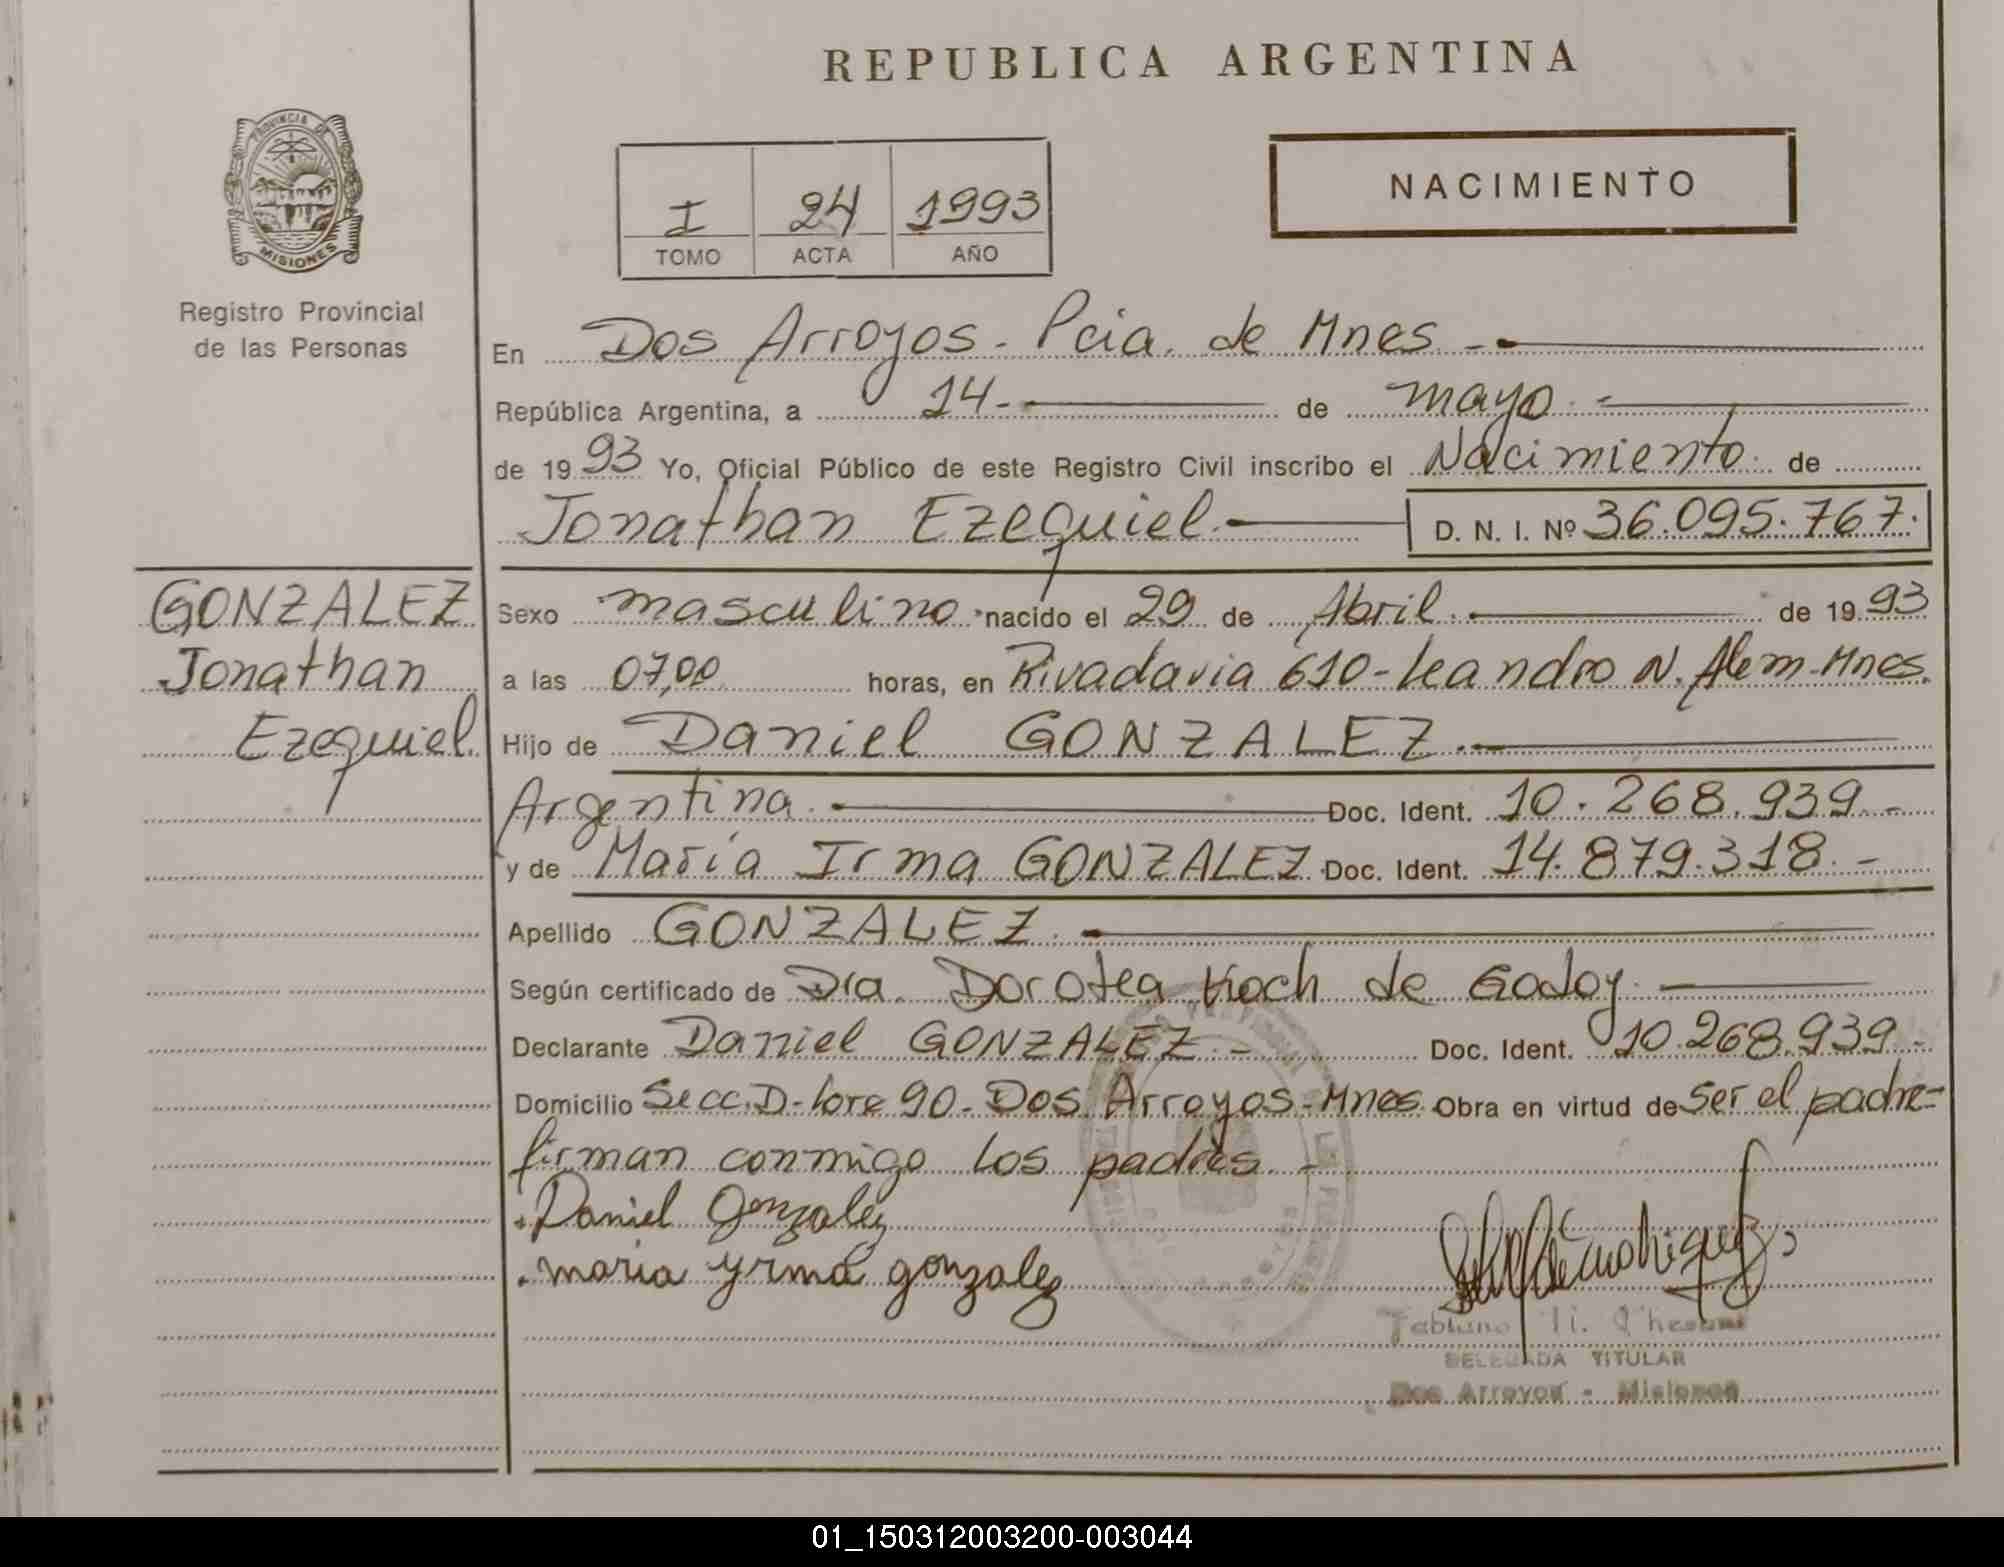 REPUBLICA ARGENTINA
PROVINCIA DE
MISIONES
Registro Provincial
de las Personas
I 24 1993
TOMO ACTA AÑO
NACIMIENTO
En Dos Arroyos - Pcia. de Mnes -
República Argentina, a 14- de mayo -
de 1993 Yo, Oficial Público de este Registro Civil inscribo el Nacimiento de
Jonathan Ezequiel. D. N. I. Nº 36.095.767.
GONZALEZ
Jonathan
Ezequiel.
Sexo masculino nacido el 29 de Abril. de 1993
a las 07,00 horas, en Rivadavia 610-Leandro N. Alem-Mnes.
Hijo de Daniel GONZALEZ.
Argentina. Doc. Ident. 10.268.939.-
y de María Irma GONZALEZ Doc. Ident. 14.879.318.-
Apellido GONZALEZ.
Según certificado de Dra. Dorotea Koch de Godoy.
Declarante Daniel GONZALEZ.- Doc. Ident. 10.268.939-
Domicilio Secc. D-lote 90-Dos Arroyos-Mnes. Obra en virtud de ser el padre=
firman conmigo los padres.-
Daniel Gonzalez
maria yrma gonzalez
DELEGADA TITULAR
Dos Arroyos - Misiones
01_150312003200-003044